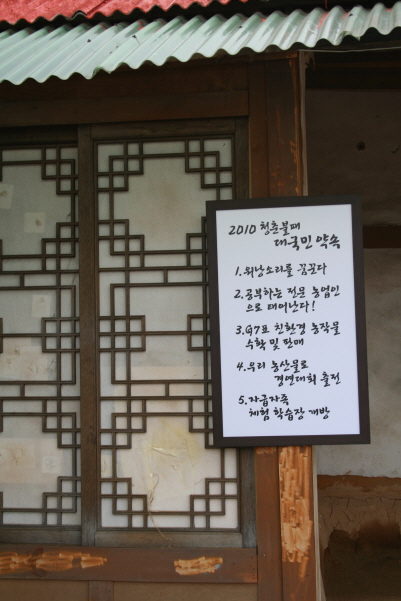 2010 청춘불패
대국민 약속
1. 워낭소리를 꿈꾼다
2. 공부하는 전문 농업인
으로 태어난다!
3. G7표 친환경 농작물
수확 및 판매
4. 우리 농산물로
경연대회 출전
5. 자급자족
체험 학습장 개방